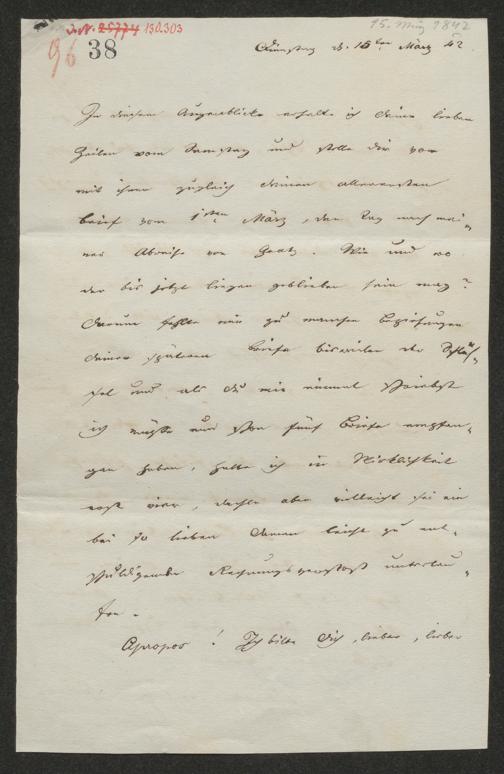 J.N. 25774 150.303
15. März 1842
96 38
Dienstag d. 15ten März 42
In diesem Augenblicke erhalte ich deine lieben
Zeilen vom Samstag und stelle dir vor
mit ihnen zugleich deinen allerersten
Brief vom 1sten März, den Tag nach mei-
ner Abreise von Gratz. Wie und wo
der bis jetzt liegen geblieben sein mag?
Darum fehlte mir zu manchen Beziehungen
deiner späteren Briefe bisweilen der Schlüs-
sel und als du mir einmal schriebst
ich müßte nun schon fünf Briefe empfan-
gen haben, hatte ich in Wirklichkeit
erst vier, dachte aber vielleicht sei ein
bei so lieben Damen leicht zu ent-
schuldigender Rechnungsverstoß unterlau-
fen.
Apropos! Ich bitte dich, lieber, lieber